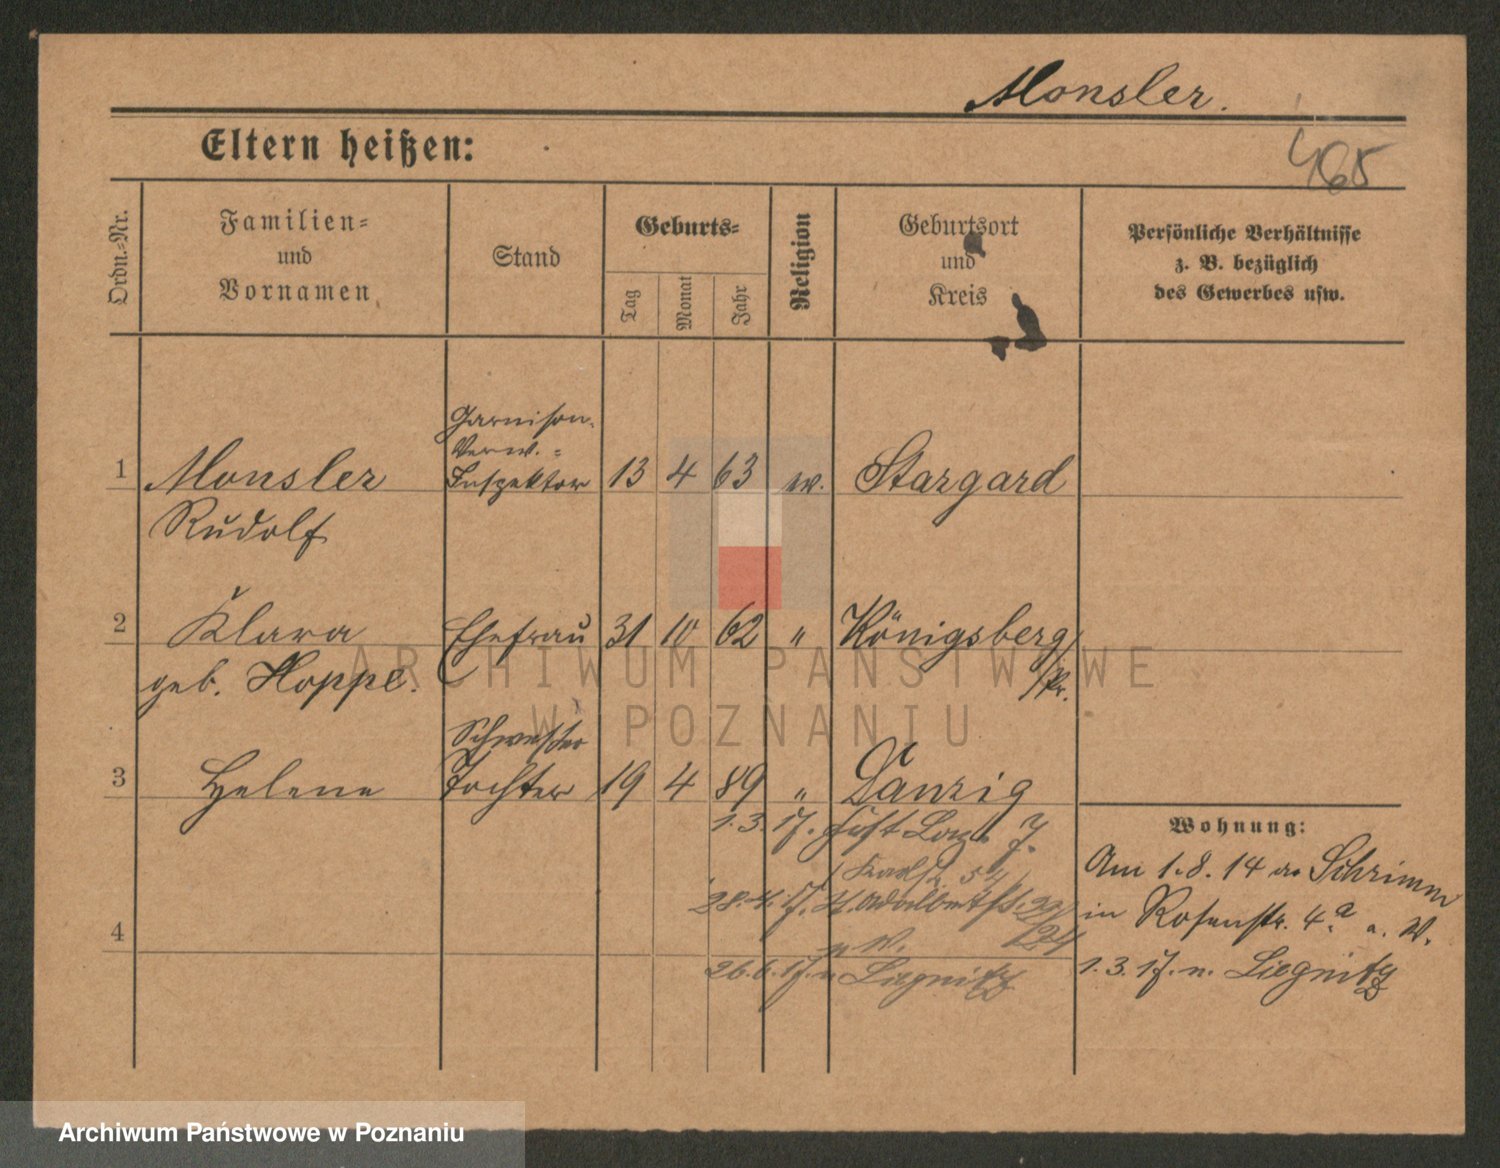 Monsler.
465
Eltern heißen:
Ordn.-Nr.
Familien-
und
Vornamen
Stand
Geburts-
Tag
Monat
Jahr
Religion
Geburtsort
und
Kreis
Persönliche Verhältnisse
z. B. bezüglich
des Gewerbes usw.
Garnison-
Verw.-
1 Monsler Inspektor 13 4 63 ev. Stargard
Rudolf
2 Klara Ehefrau 31 10 62 " Königsberg
geb. Hoppe. /Pr.
Schwester
3 Helene Tochter 19 4 89 " Danzig
1.3.17. Fest Laz.
Wohnung:
Am 1.8.14 Schrimm
28.4.17.
in Rosenstr. 4a a. W.
4
n W.
26.6.17. n Liegnitz
1.3.17. n. Liegnitz
ARCHIWUM PAŃSTWOWE
W POZNANIU
Archiwum Państwowe w Poznaniu